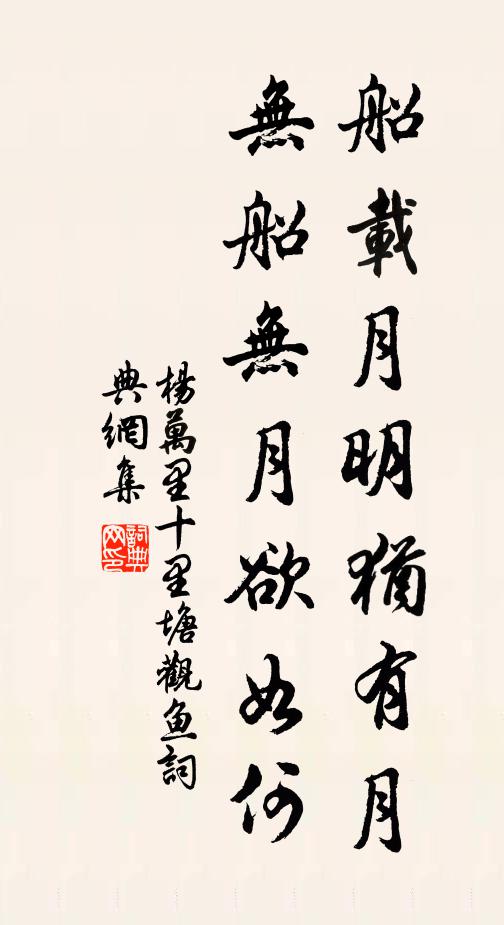 船載月明猶有月
無船無月欲如何
楊萬里十里塘觀魚詞
典網集
詞典網印